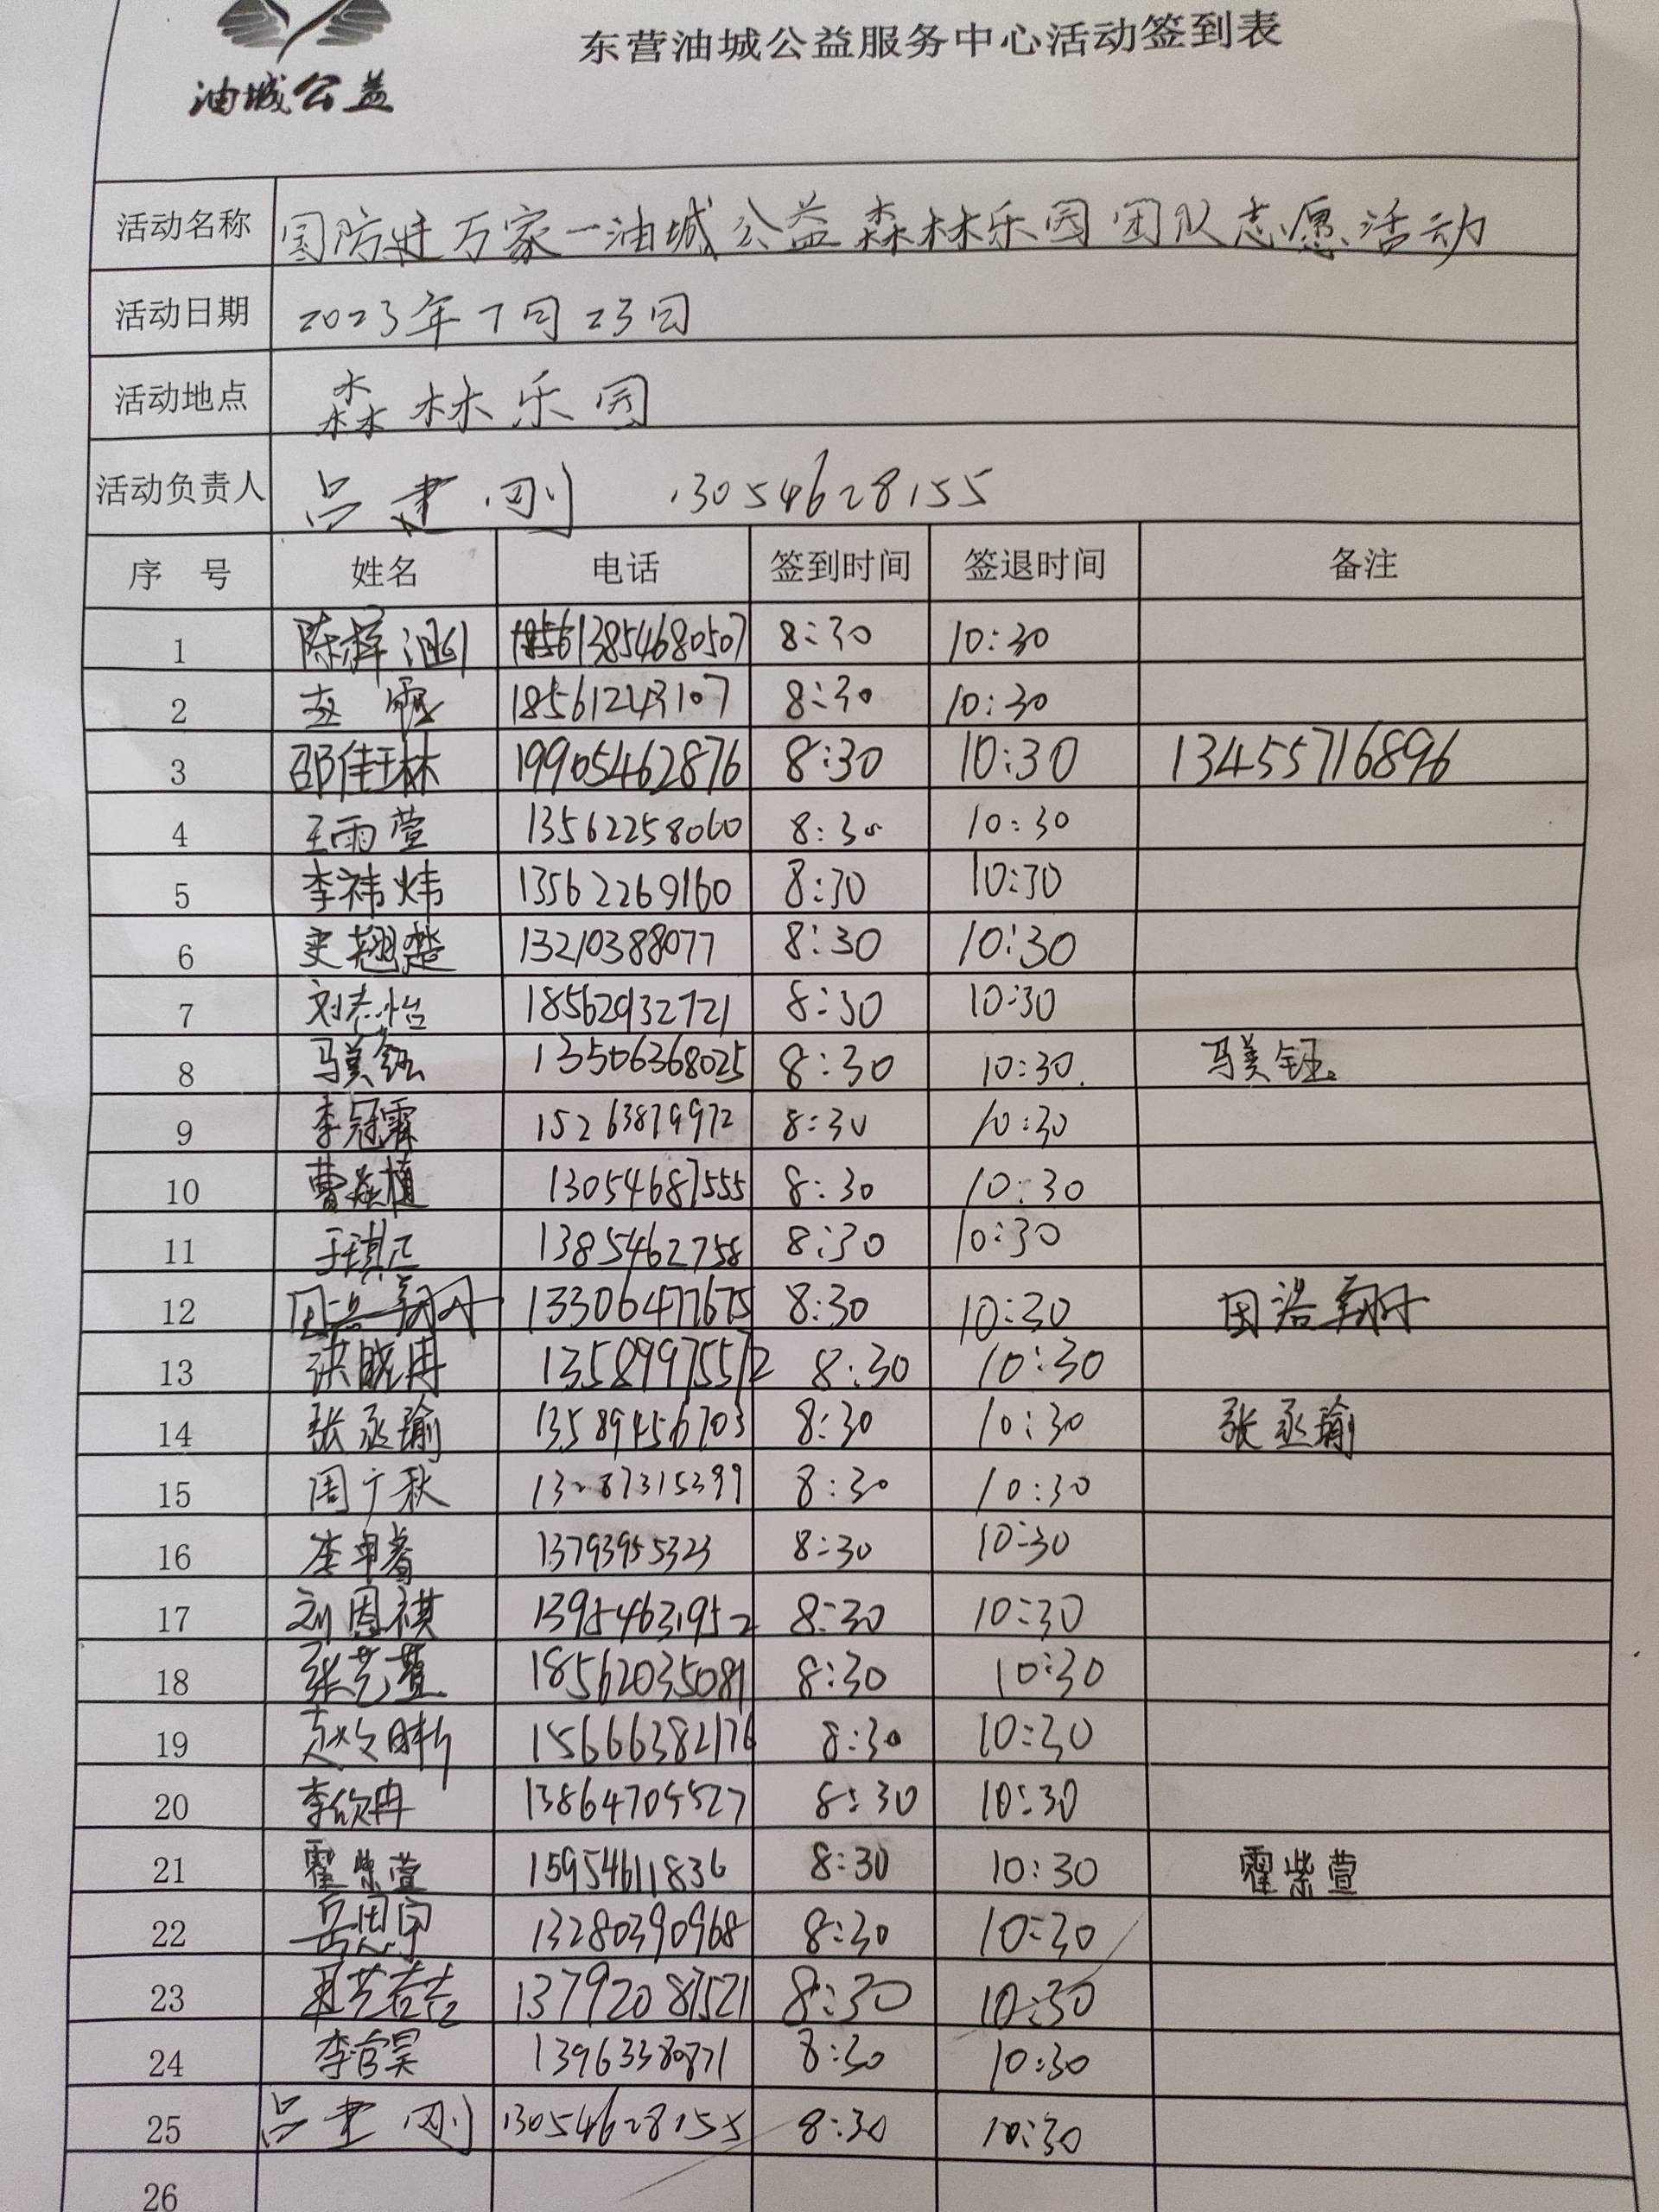 油城公益
东营油城公益服务中心活动签到表
活动名称 国防进万家—油城公益森林乐园团队志愿活动
活动日期 2023年7月23日
活动地点 森林乐园
活动负责人 吕建刚 13054628155
序 号 姓名 电话 签到时间 签退时间 备注
1 13854680507 8:30 10:30
2 赵 18561243107 8:30 10:30
3 邵佳琳 19905462876 8:30 10:30 13455716896
4 王雨萱 13562258060 8:30 10:30
5 李祎炜 13562269160 8:30 10:30
6 史翘楚 13210388077 8:30 10:30
7 刘志怡 18562932721 8:30 10:30
8 马美钰 13506368025 8:30 10:30 马美钰
9 李冠霖 15263879972 8:30 10:30
10 曹焱植 13054687555 8:30 10:30
11 于琪正 1385462758 8:30 10:30
12 13306477675 8:30 10:30 田浩翔
13 洪晓冉 13589975572 8:30 10:30
14 张丞瑜 13589456703 8:30 10:30 张丞瑜
15 周广秋 13287315399 8:30 10:30
16 李申睿 13793955323 8:30 10:30
17 刘恩祺 13954631952 8:30 10:30
18 张艺萱 18562035081 8:30 10:30
19 15666382176 8:30 10:30
20 李欣冉 13864705527 8:30 10:30
21 霍紫萱 15954611836 8:30 10:30 霍紫萱
22 岳思宇 13280390968 8:30 10:30
23 13792087521 8:30 10:30
24 李官昊 13963380871 8:30 10:30
25 吕建刚 13054628155 8:30 10:30
26